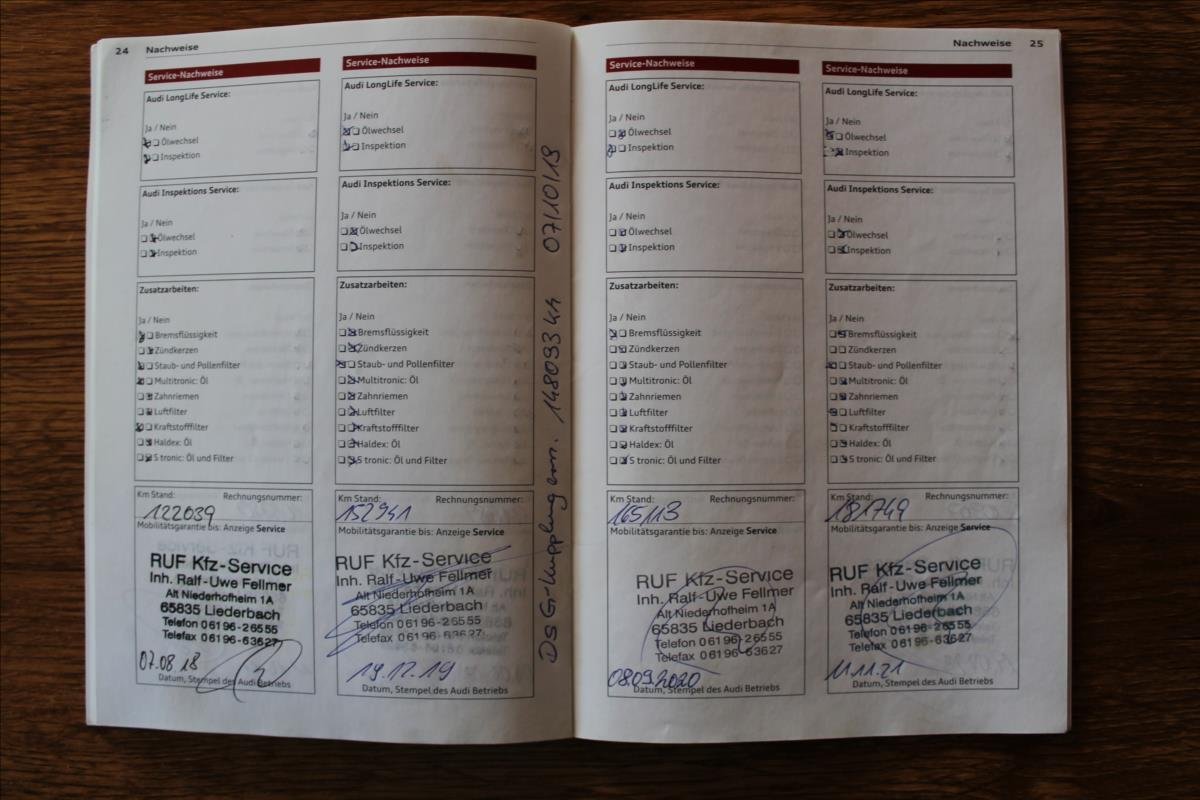 24 Nachweise
Service-Nachweise
Audi LongLife Service:
Ja / Nein
Ölwechsel
Inspektion
Audi Inspektions Service:
Ja / Nein
Ölwechsel
Inspektion
Zusatzarbeiten:
Ja / Nein
Bremsflüssigkeit
Zündkerzen
Staub- und Pollenfilter
Multitronic: Öl
Zahnriemen
Luftfilter
Kraftstofffilter
Haldex: Öl
S tronic: Öl und Filter
Km Stand: Rechnungsnummer:
122039
Mobilitätsgarantie bis: Anzeige Service
RUF Kfz-Service
Inh. Ralf-Uwe Fellmer
Alt Niederhofheim 1A
65835 Liederbach
Telefon 06196-26555
Telefax 06196-63627
07.08 18
Datum, Stempel des Audi Betriebs
Service-Nachweise
Audi LongLife Service:
Ja / Nein
Ölwechsel
Inspektion
Audi Inspektions Service:
Ja / Nein
Ölwechsel
Inspektion
Zusatzarbeiten:
Ja / Nein
Bremsflüssigkeit
Zündkerzen
Staub- und Pollenfilter
Multitronic: Öl
Zahnriemen
Luftfilter
Kraftstofffilter
Haldex: Öl
S tronic: Öl und Filter
Km Stand: Rechnungsnummer:
152941
Mobilitätsgarantie bis: Anzeige Service
RUF Kfz-Service
Inh. Ralf-Uwe Fellmer
Alt Niederhofheim 1A
65835 Liederbach
Telefon 06196-26555
Telefax 06196-63627
19.12.19
Datum, Stempel des Audi Betriebs
DSG-Kupplung ern. 148093 07/10/19
Nachweise 25
Service-Nachweise
Audi LongLife Service:
Ja / Nein
Ölwechsel
Inspektion
Audi Inspektions Service:
Ja / Nein
Ölwechsel
Inspektion
Zusatzarbeiten:
Ja / Nein
Bremsflüssigkeit
Zündkerzen
Staub- und Pollenfilter
Multitronic: Öl
Zahnriemen
Luftfilter
Kraftstofffilter
Haldex: Öl
S tronic: Öl und Filter
Km Stand: Rechnungsnummer:
165113
Mobilitätsgarantie bis: Anzeige Service
RUF Kfz-Service
Inh. Ralf-Uwe Fellmer
Alt Niederhofheim 1A
65835 Liederbach
Telefon 06196-26555
Telefax 06196-63627
08.09.2020
Datum, Stempel des Audi Betriebs
Service-Nachweise
Audi LongLife Service:
Ja / Nein
Ölwechsel
Inspektion
Audi Inspektions Service:
Ja / Nein
Ölwechsel
Inspektion
Zusatzarbeiten:
Ja / Nein
Bremsflüssigkeit
Zündkerzen
Staub- und Pollenfilter
Multitronic: Öl
Zahnriemen
Luftfilter
Kraftstofffilter
Haldex: Öl
S tronic: Öl und Filter
Km Stand: Rechnungsnummer:
181749
Mobilitätsgarantie bis: Anzeige Service
RUF Kfz-Service
Inh. Ralf-Uwe Fellmer
Alt Niederhofheim 1A
65835 Liederbach
Telefon 06196-26555
Telefax 06196-63627
11.11.21
Datum, Stempel des Audi Betriebs